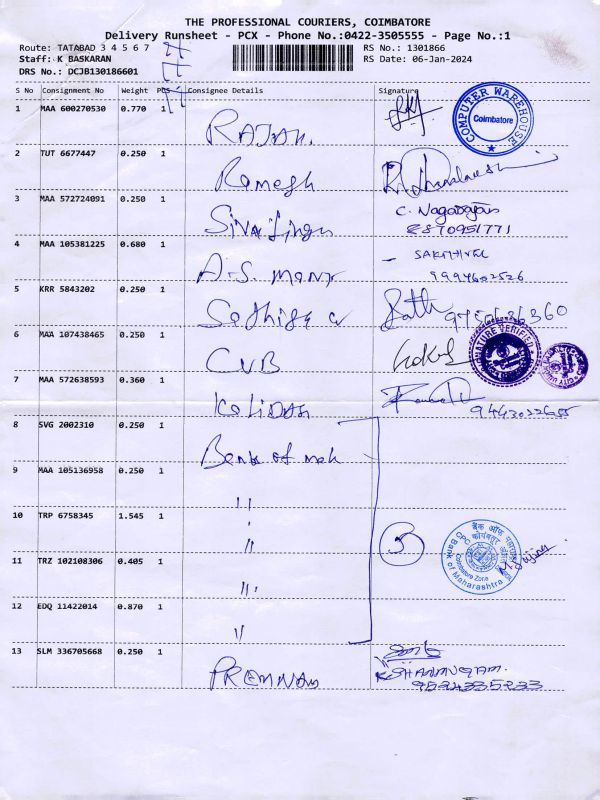 THE PROFESSIONAL COURIERS, COIMBATORE
Delivery Runsheet - PCX - Phone No.:0422-3505555 - Page No.:1
Route: TATABAD 3 4 5 6 7
RS No.: 1301866
Staff: K BASKARAN
RS Date: 06-Jan-2024
DRS No.: DCJB130186601
S No Consignment No Weight PCS Consignee Details Signature
1 MAA 600270530 0.770 1 RAJAN.
COMPUTER WAREHOUSE Coimbatore
2 TUT 6677447 0.250 1 Ramesh
3 MAA 572724091 0.250 1 Sivalingam C. Nagarajan
8870951771
4 MAA 105381225 0.680 1 A.S. Mani SAKTHIVEL
9994602526
5 KRR 5843202 0.250 1 Sathish
6 MAA 107438465 0.250 1 CUB Gokul
SIGNATURE VERIFIED
7 MAA 572638593 0.360 1 Kalidas
8 SVG 2002310 0.250 1 Bank of mah
9 MAA 105136958 0.250 1 11
10 TRP 6758345 1.545 1 11
5
बैंक ऑफ महाराष्ट्र
Bank of Maharashtra
Coimbatore Zone
11 TRZ 102108306 0.405 1 11
12 EDQ 11422014 0.870 1 11
13 SLM 336705668 0.250 1 PREMNAS
K SHANMUGAM.